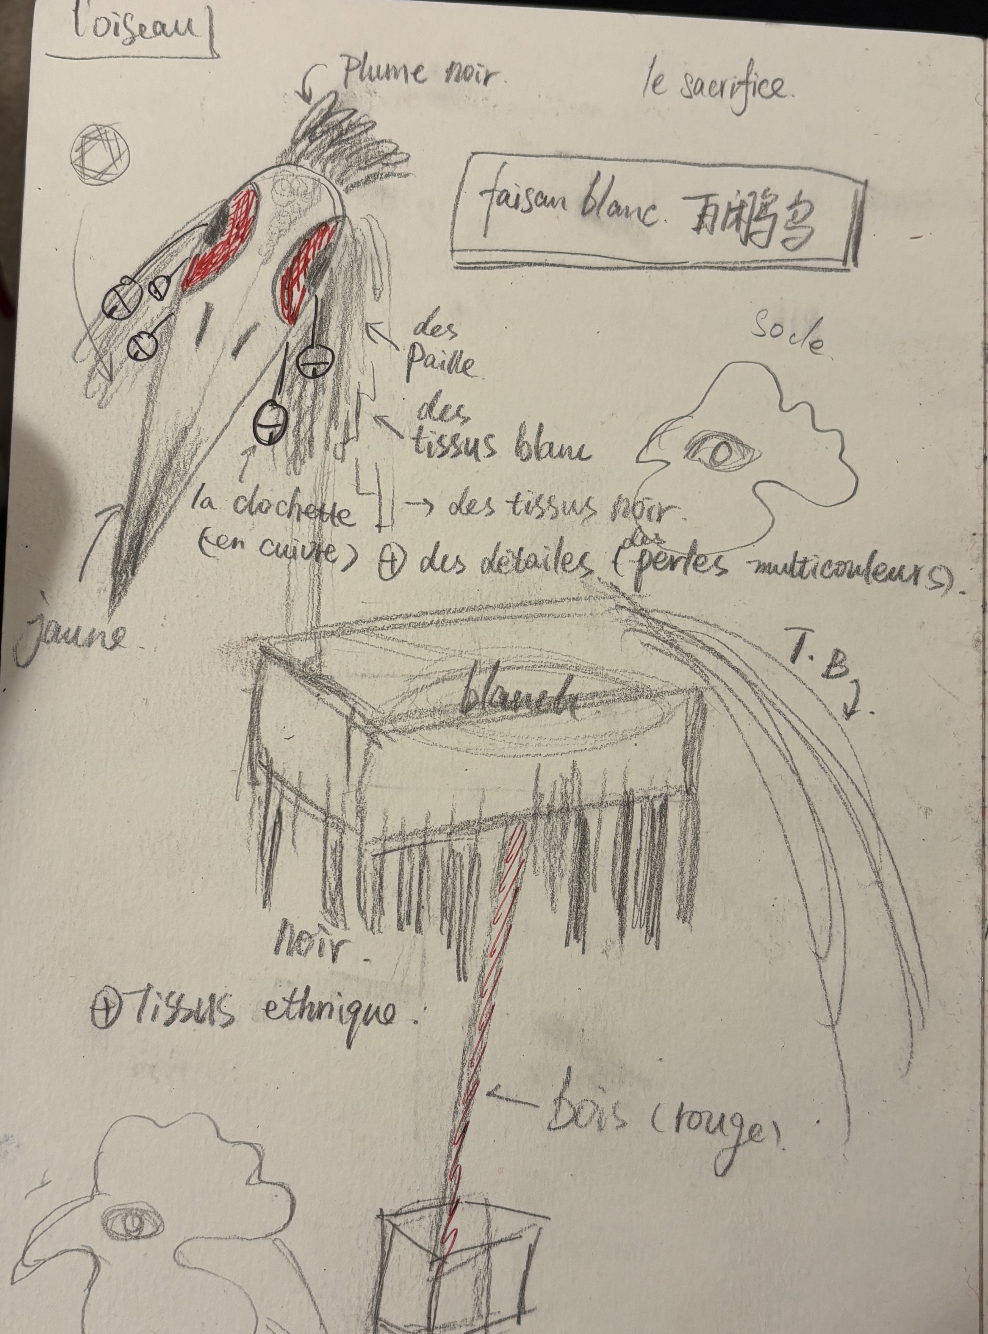 l'oiseau
Plume noir.
le sacrifice.
faisan blanc. 百闲鹇鸟
Socle
des
Paille
des
tissus blanc
la clochette
(en cuivre)
→ des tissus noir.
⊕ des détailes (des perles multicouleurs).
jaune.
T.B
blanche
noir.
⊕ Tissus ethnique.
Bois (rouge)